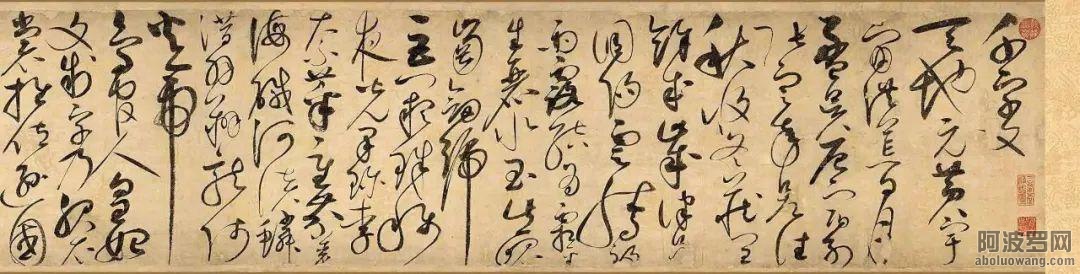 千字文
天地元黃宇
宙洪荒日月
盈昃辰宿列
張寒來暑往
秋收冬藏閏
餘成歲律呂
調陽雲騰致
雨露結為霜
生麗水玉出崑
岡劍號
巨闕珠稱
夜光果珍李
柰菜重芥薑
海鹹河淡鱗
潛羽翔龍師
火帝
鳥官人皇始
文制字乃服衣
裳推位遜國
阿波罗网
aboluowang.com